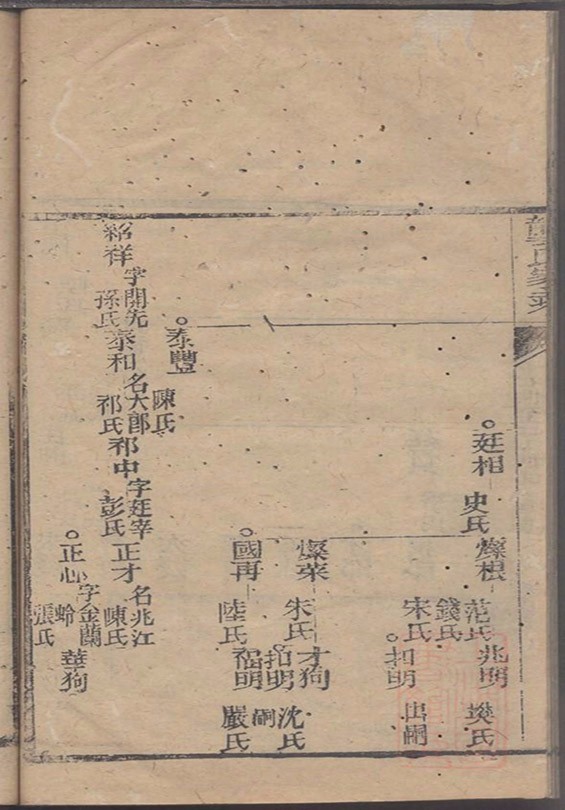 氏家
廷相
史氏
燦根
范氏
錢氏
宋氏
兆明
樊氏
扣明
出嗣
燦榮
朱氏
才狗
沈氏
扣明
嗣
國再
陸氏
福明
嚴氏
泰豐
陳氏
紹祥
字開先
孫氏
泰和
名大郎
祁氏
祁中
字廷宰
彭氏
正才
名兆江
陳氏
正心
字金蘭
蛉
張氏
華狗